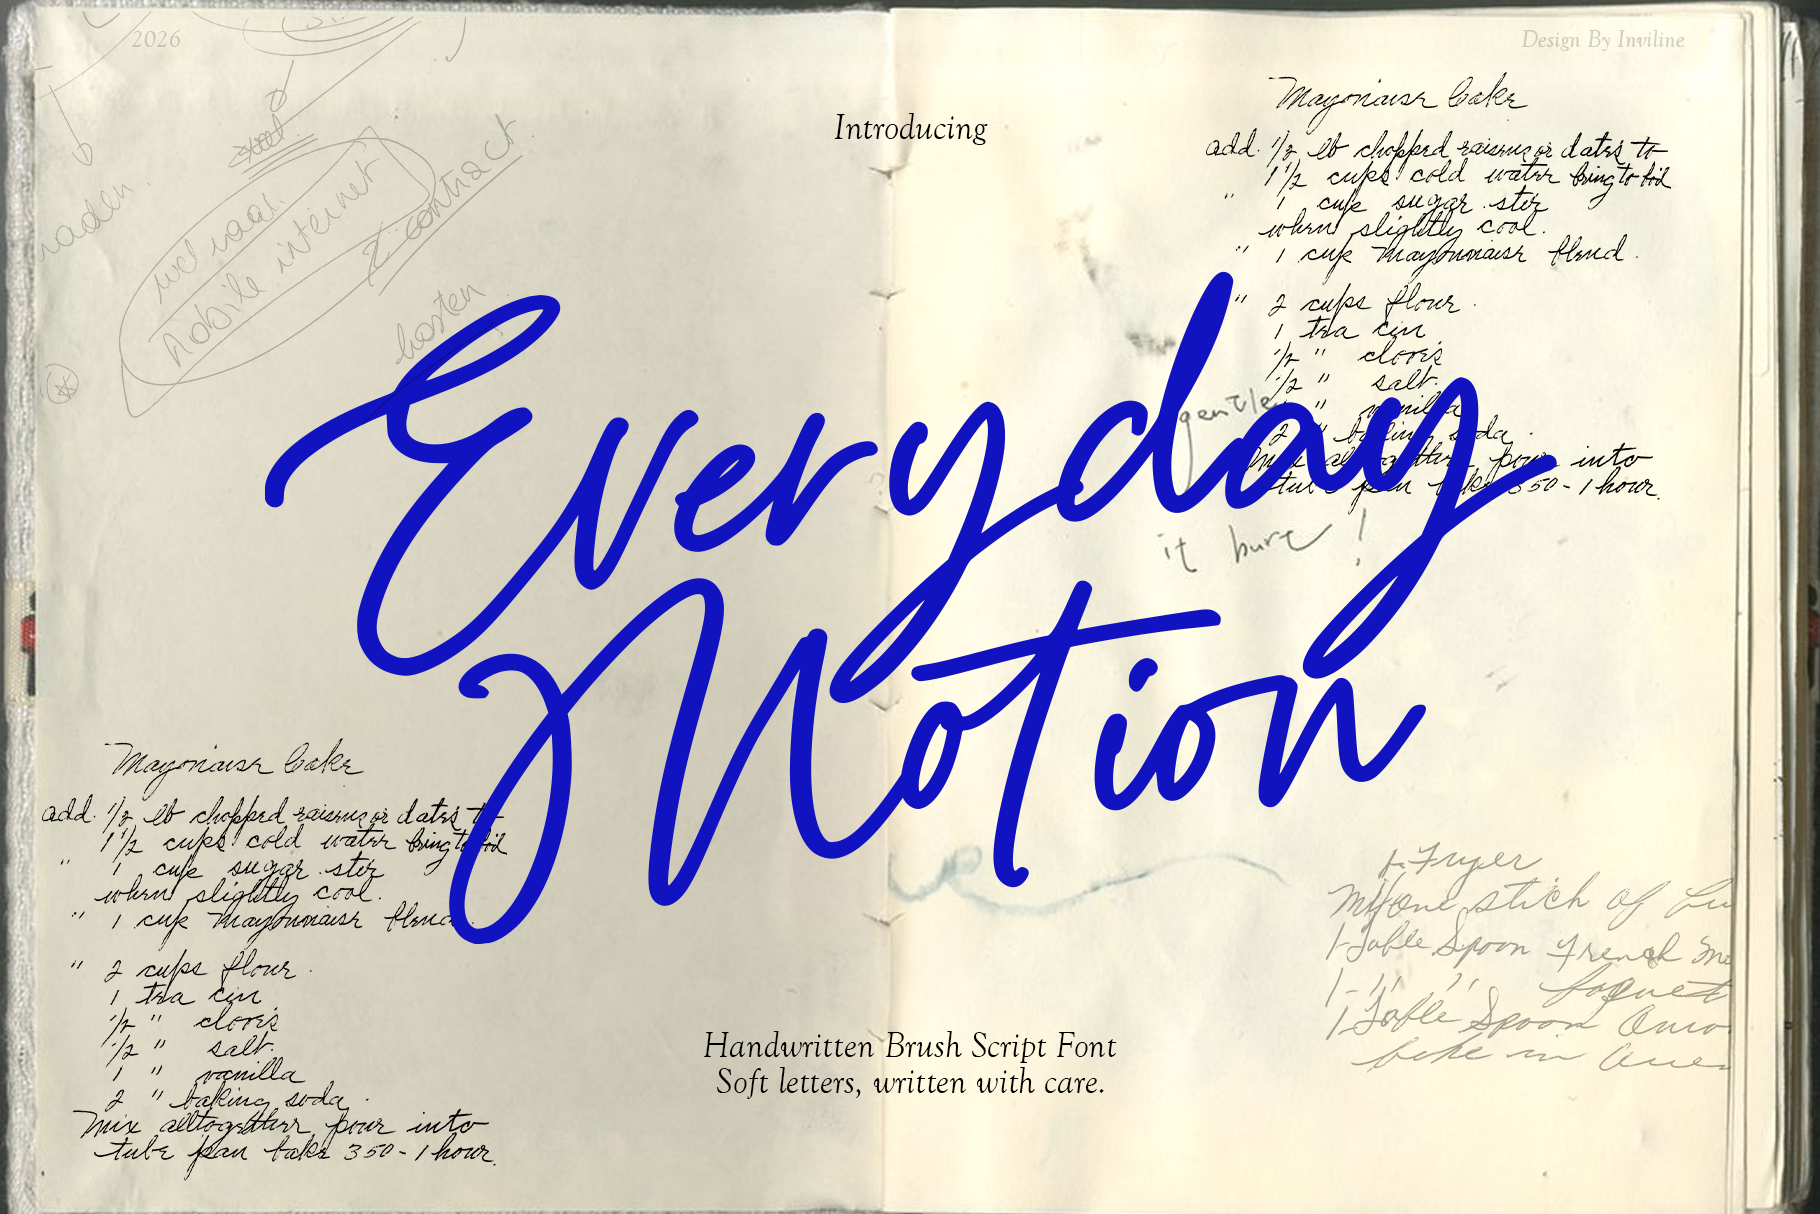 2026
Design By Inviline
Introducing
mobile internet
contract
Mayonaise Cake
add 1/2 lb chopped raisins or dates to
1 1/2 cups cold water bring to boil
" 1 cup sugar stir
when slightly cool.
" 1 cup Mayonnaise blend.
" 2 cups flour.
1 tea cin
1/2 " cloves
1/2 " salt.
" vanilla
2 " baking soda.
Mix alltogether pour into
tube pan bake 350 - 1 hour.
gentle
it
!
Everyday
Notion
Mayonaise Cake
add. 1/2 lb chopped raisins or dates to
1 1/2 cups cold water bring to boil
" 1 cup sugar stir
when slightly cool.
" 1 cup Mayonnaise blend
" 2 cups flour.
1 tea cin
1/2 " cloves
1/2 " salt.
1 " vanilla
2 " baking soda.
Mix alltogether pour into
tube pan bake 350 - 1 hour.
Fryer
one stick of
1 Table Spoon French
1 - " "
1 Table Spoon
bake in
Handwritten Brush Script Font
Soft letters, written with care.